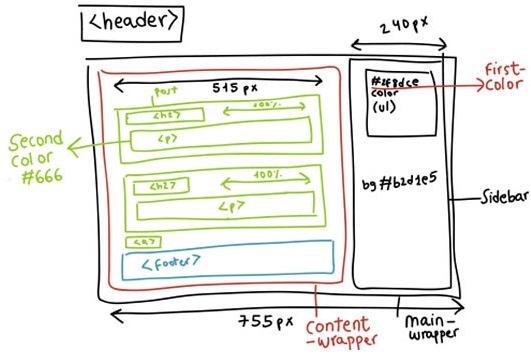 <header>
240px
515 px
post
<h2>
100%
<p>
Second
color
#666
<h2>
100%
<p>
<a>
<footer>
#2f8dce
color
(ul)
First-
Color
bg#b2d1e5
Sidebar
755px
Content
-wrapper
main-
wrapper